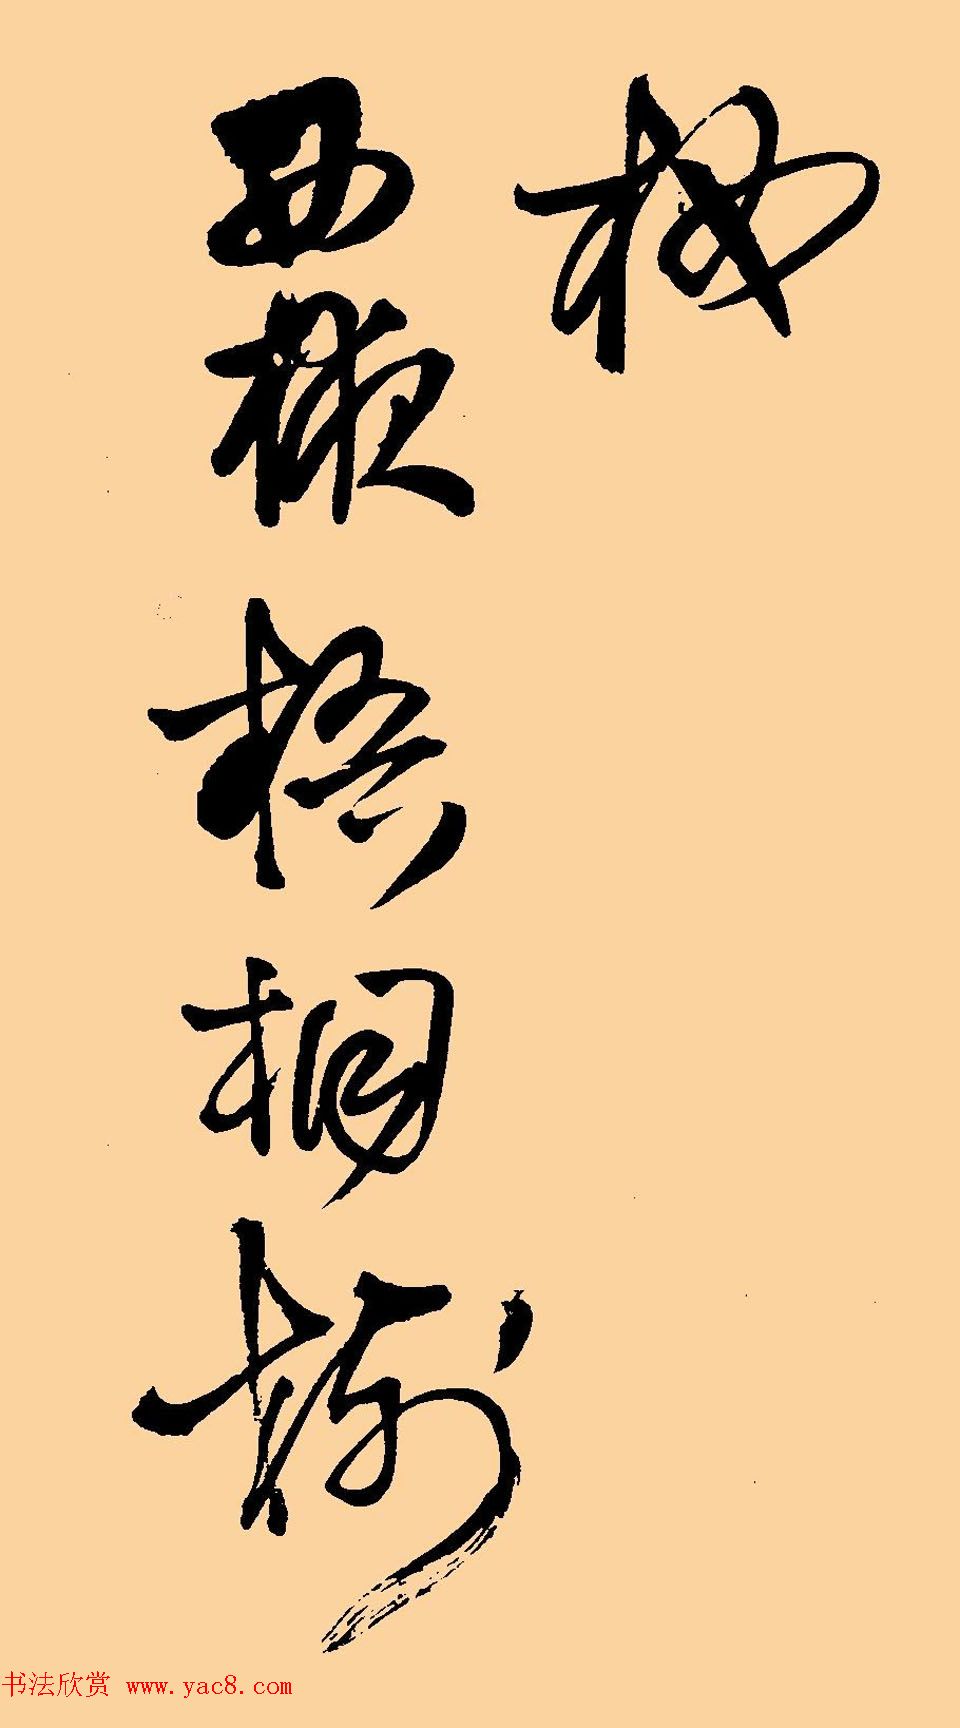 西掖梧桐樹
书法欣赏 www.yac8.com